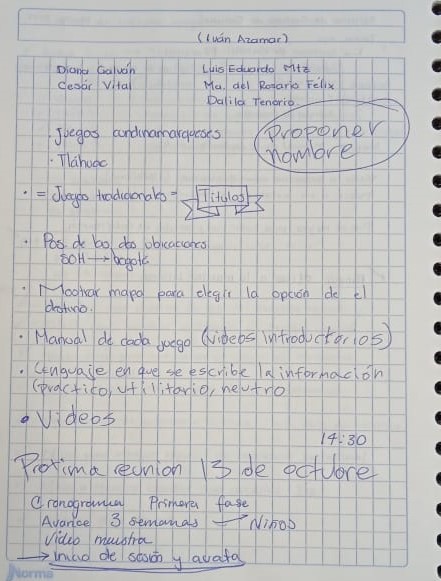 (Iván Azamar)
Diana Galván Luis Eduardo Mtz
César Vital Ma. del Rosario Félix
Dalila Tenorio
Juegos cundinamarqueses
Proponer nombre
· Tláhuac
· = Juegos tradicionales = Títulos
· Pos de bo, dos ubicaciones
SOH → bogotá
· Mostrar mapa para elegir la opción de el
destino.
· Manual de cada juego (videos introductorios)
· Lenguaje en que se escribe la información
(práctico, utilitario, neutro
· Videos
14:30
Proxima reunion 13 de octubre
Cronograma Primera fase
Avance 3 semanas → Niños
Video muestra
→ Inicio de sesión y avata
Norma